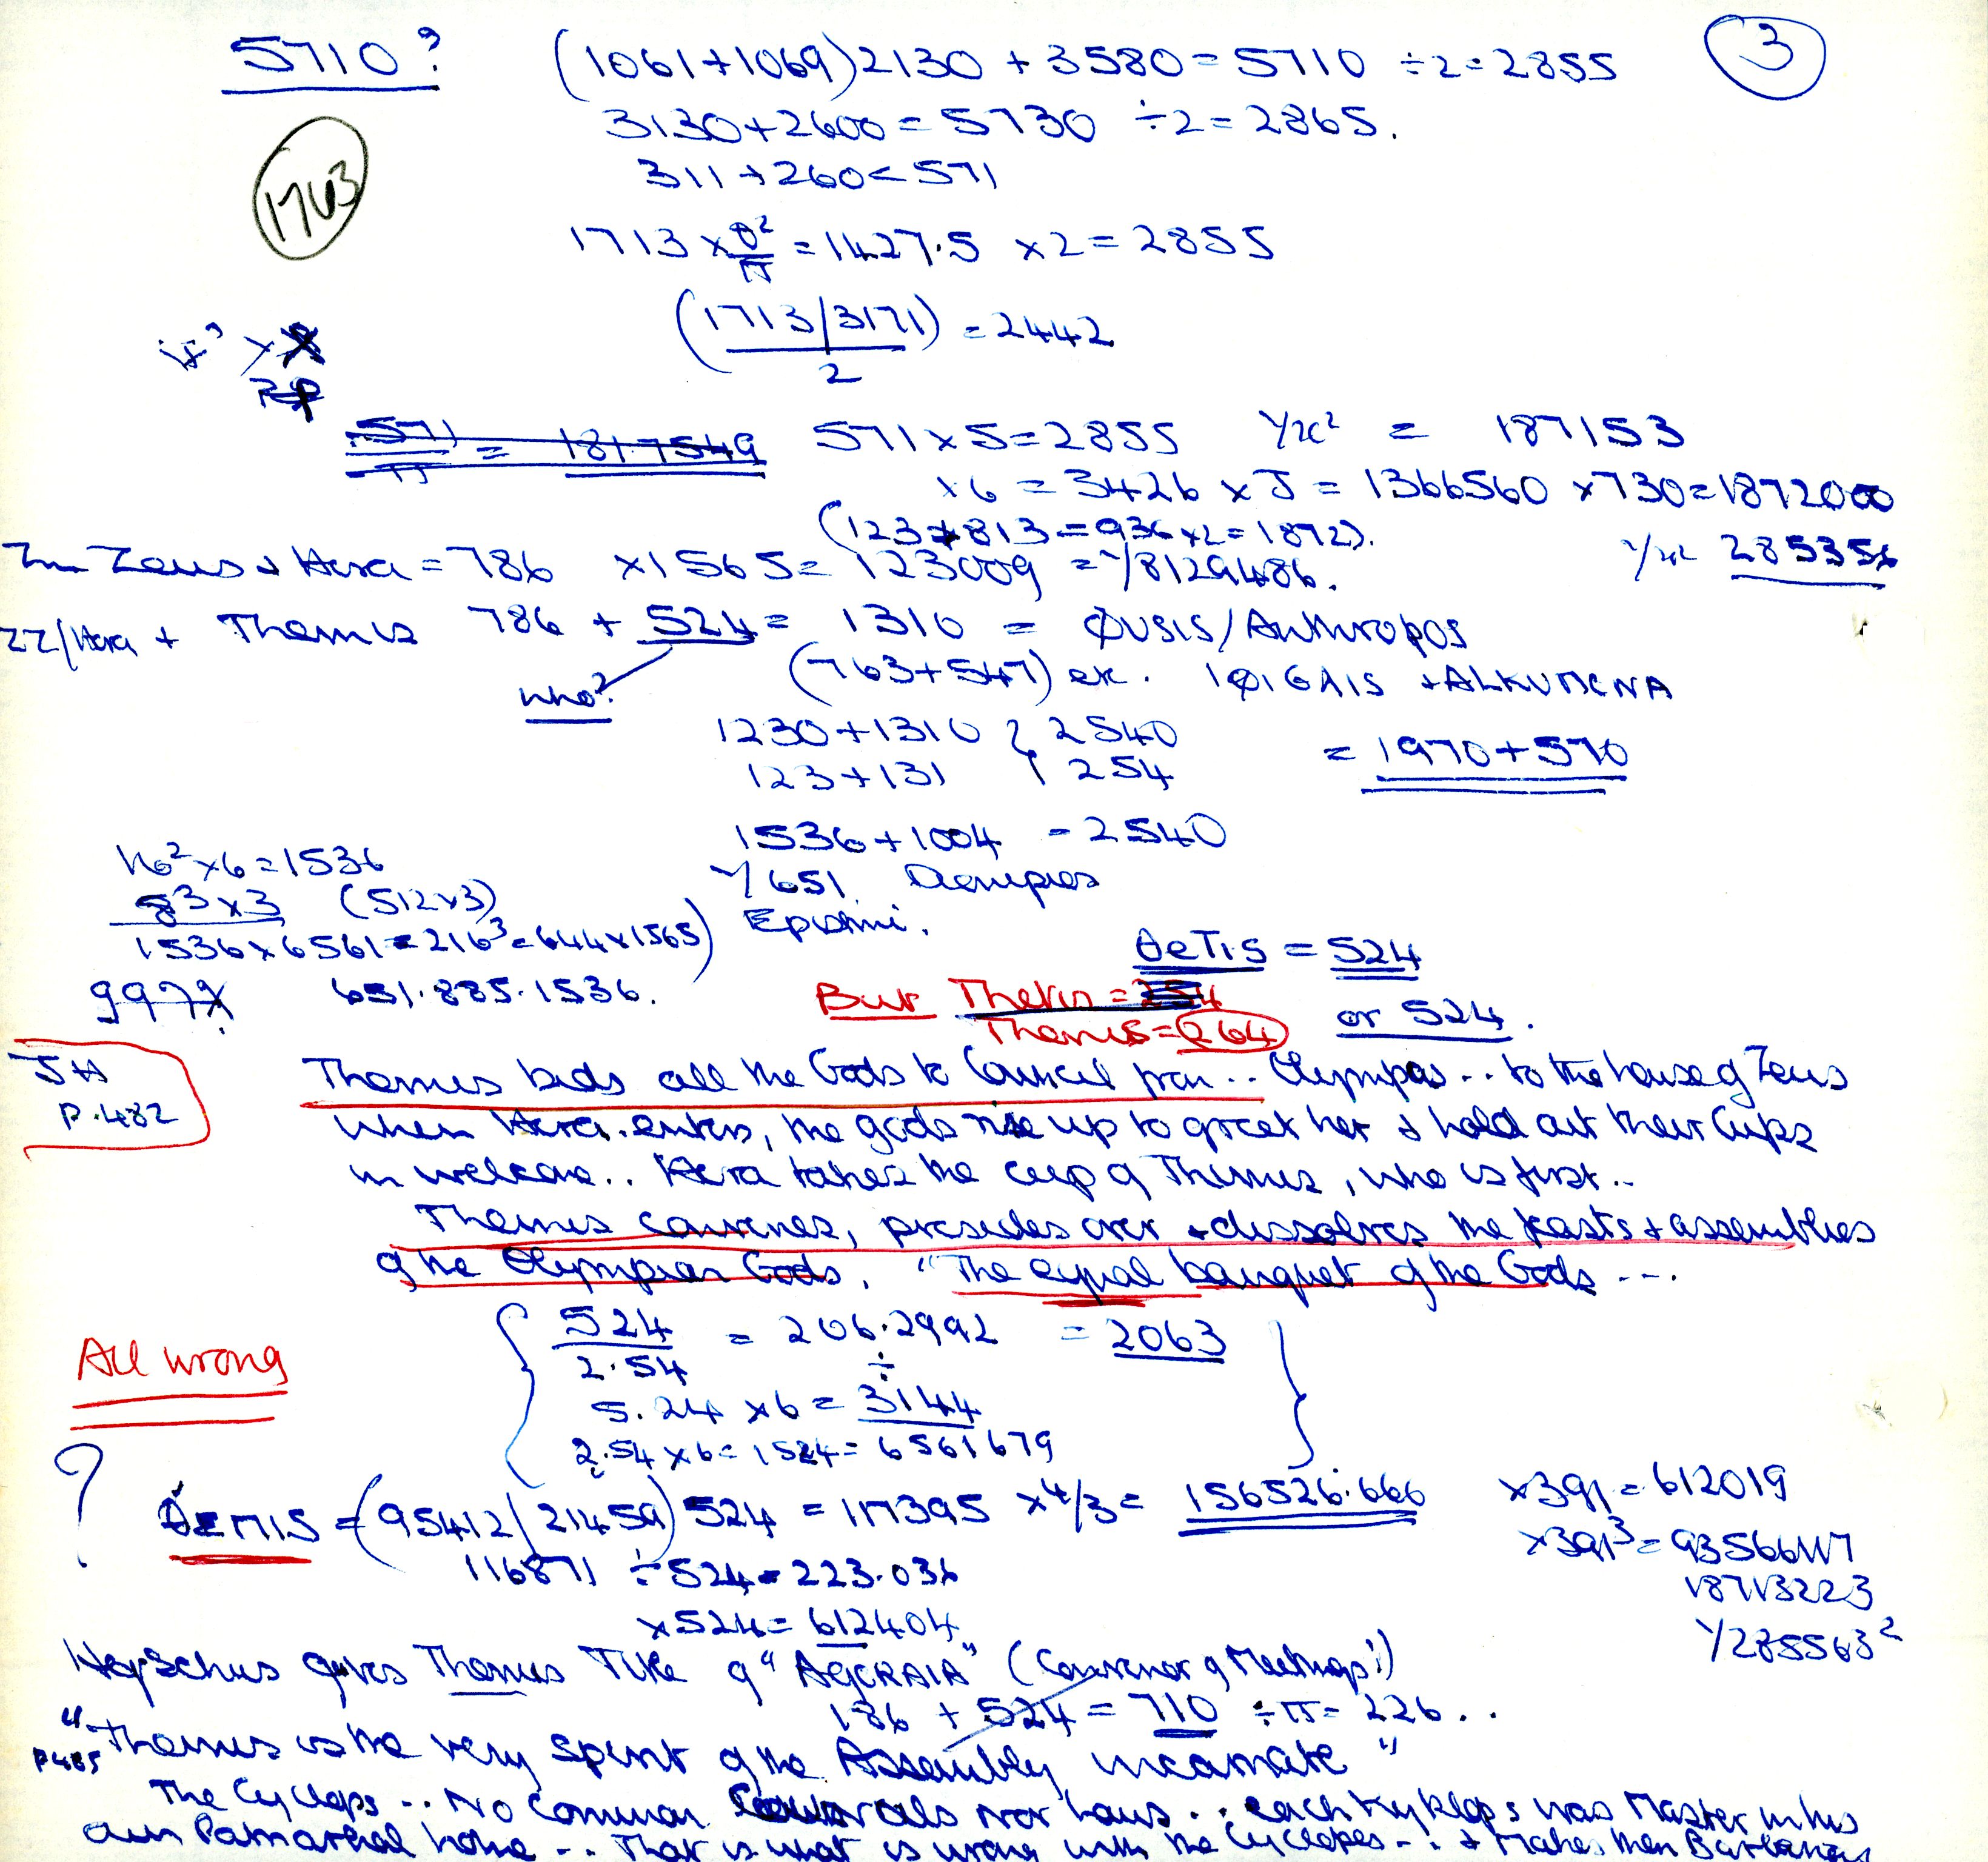 5710? (1061+1069) 2130 + 3580 = 5710 ÷2 = 2855
3
3130+2600 = 5730 ÷2 = 2865.
311+260 = 571
1763
1713 × θ²/π = 1427.5 ×2 = 2855
(1713/3171)/2 = 2442
571/π = 181.7549
571×5 = 2855 1/x² = 187153
×6 = 3426 × J = 1366560 ×730 = 1872000
(123+813 = 936 ×2 = 1872).
Zeus + Hera = 786 ×1565 = 123009 = 1/8129486.
1/x 285356
ZZ/Hera + Themis 786 + 524 = 1310 = ΦUSIS/Anthropos
who?
(763+547) ex. IΦIGAIS + ALKUMENA
1230+1310 } 2540
123+131 } 254
= 1970+570
1536+1004 = 2540
16²×6 = 1536
8³×3 (512×3)
1/651
1536×6561 = 216³ = 644×1565)
θeTIS = 524
997 651.885.1536.
But Thetis = 254
or 524.
Themis = 264
JH
P.482
Themis bids all the Gods to Council from .. Olympos .. to the house of Zeus
when Hera enters, the gods rise up to greet her & hold out their Cups
in welcome .. Hera takes the cup of Themis, who is first ..
Themis convenes, presides over + dissolves the feasts + assemblies
of the Olympian Gods. "The equal banquet of the Gods ...
524/2.54 = 206.2992 = 2063
All wrong
÷
5.24 ×6 = 3144
2.54 ×6 = 1524 = 6561679
?
θEMIS = (95412/21459) 524 = 117395 ×4/3 = 156526.666
×391 = 612019
116871 ÷524 = 223.036
×391³ = 93566117
18713223
×524 = 612404
1/285563²
Hesychus gives Themis Title of "AGORAIA" (Convenor of Meetings!)
186 + 524 = 710 ÷π = 226..
"Themis is the very spirit of the Assembly incarnate"
P485
The Cyclops .. No common nor laws .. each Kyklops was Master in his
own Patriarchal home ... That is what is wrong with the Cyclopes - & Makes them Barbarians